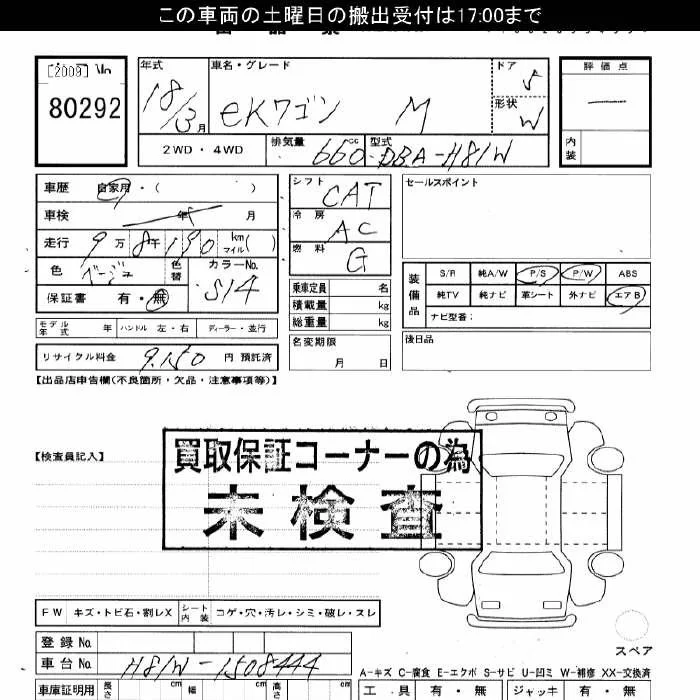 この車両の土曜日の搬出受付は17:00まで
[2009] No
80292
年式 車名・グレード ドア 評価点
18/3月 eKワゴン M 5
形状 W
2WD・4WD 排気量 660cc 型式 DBA-H81W
内装
車歴 自家用・( )
車検 年 月
走行 9万8千190 km マイル( )
色 ベージュ 色替 カラーNo. S14
保証書 有・無
シフト CAT
冷房 AC
燃料 G
乗車定員 名
積載量 kg
総重量 kg
セールスポイント
装備品 S/R 純A/W P/S P/W ABS
純TV 純ナビ 革シート 外ナビ エアB
ナビ型番:
モデル年式 年 ハンドル 左・右 ディーラー・並行
名変期限 月 日
後日品
リサイクル料金 9,150 円 預託済
【出品店申告欄(不良箇所・欠品・注意事項等)】
【検査員記入】
買取保証コーナーの為
未検査
FW キズ・トビ石・割レX シート内装 コゲ・穴・汚レ・シミ・破レ・スレ
登録 No
車台 No H81W-1508444
スペア
A-キズ C-腐食 E-エクボ S-サビ U-凹ミ W-補修 XX-交換済
車庫証明用 長さ cm 幅 cm 高さ cm 工具 有・無 ジャッキ 有・無